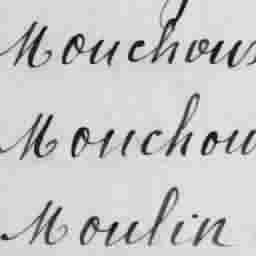 Mouchous
Mouchou
Moulin